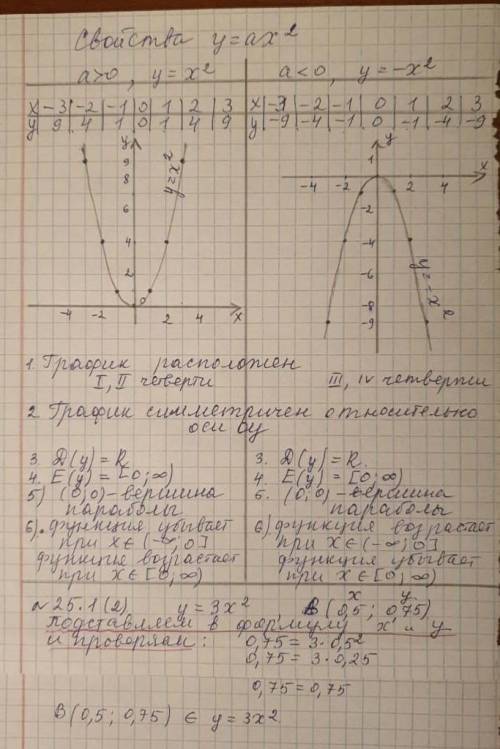 Свойства y=ax²
a>0, y=x²
a<0, y=-x²
x -3 -2 -1 0 1 2 3
y 9 4 1 0 1 4 9
x -3 -2 -1 0 1 2 3
y -9 -4 -1 0 -1 -4 -9
y
9
8
6
4
2
-4 -2 0 2 4 x
y=x²
y
1
-4 -2 2 4 x
-2
-4
-6
-8
-9
y=-x²
1. График расположен
I, II четверти
III, IV четверти
2. График симметричен относительно
оси Oy
3. D(y)=R
4. E(y)=[0;∞)
5) (0;0)-вершина
параболы
6). функция убывает
при x∈(-∞;0]
функция возрастает
при x∈[0;∞)
3. D(y)=R.
4. E(y)=[0;∞)
5. (0;0)-вершина
параболы
6) функция возрастает
при x∈(-∞;0]
функция убывает
при x∈[0;∞)
x y
№25.1(2) y=3x², B(0,5; 0,75)
подставляем в формулу x и y
и проверлам:
0,75=3·0,5²
0,75=3·0,25
0,75=0,75
B(0,5; 0,75) ∈ y=3x²